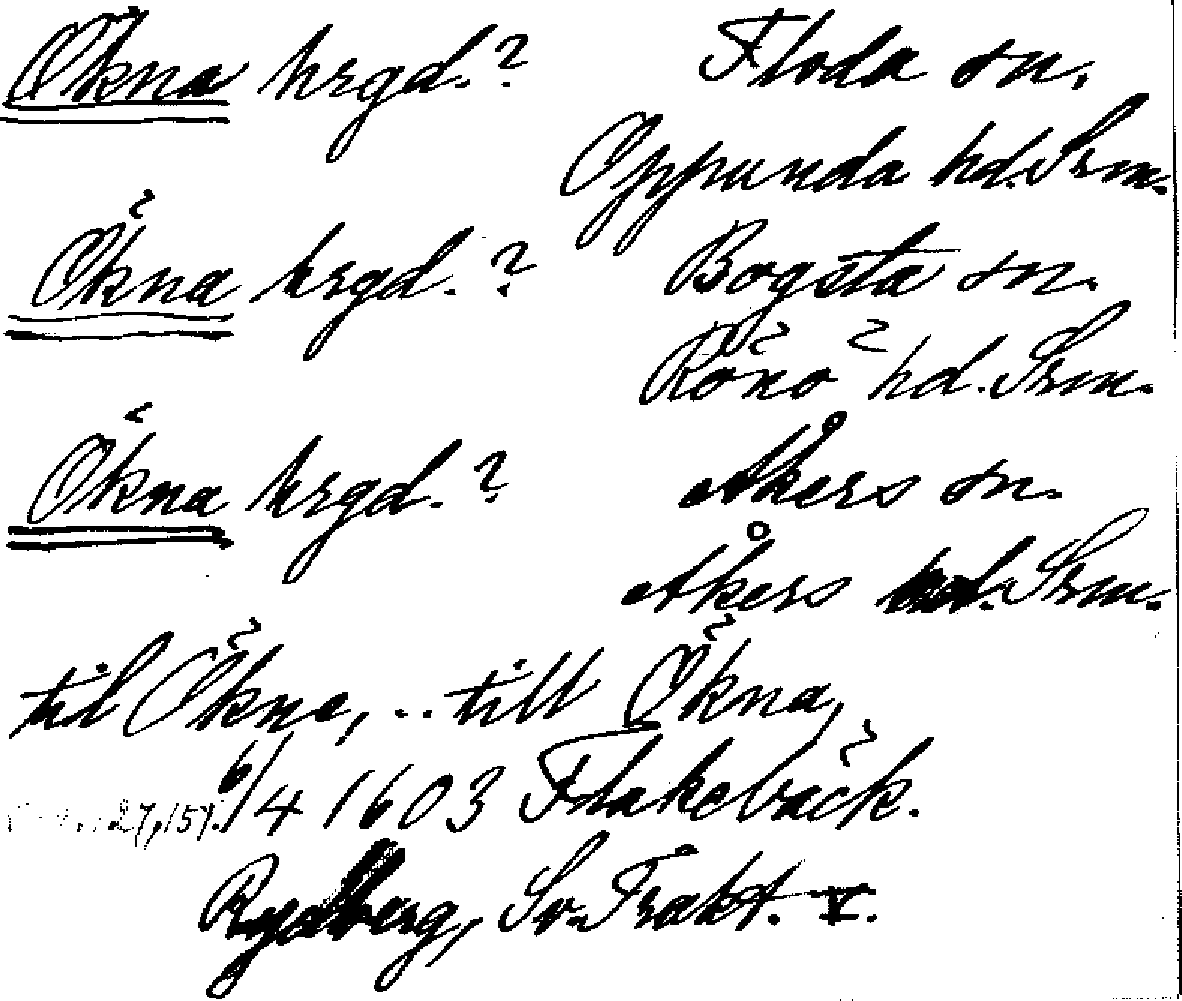 Ökna hrgd.? Floda sn.
Oppunda hd. Srm.
Ökna hrgd.? Bogsta sn.
Rönö hd. Srm.
Ökna hrgd.? Åkers sn.
Åkers hd. Srm.
till Ökna, .. till Ökna,
6/4 1603 Flakebäck.
27,157.
Rydberg, Sv. Trakt. V.